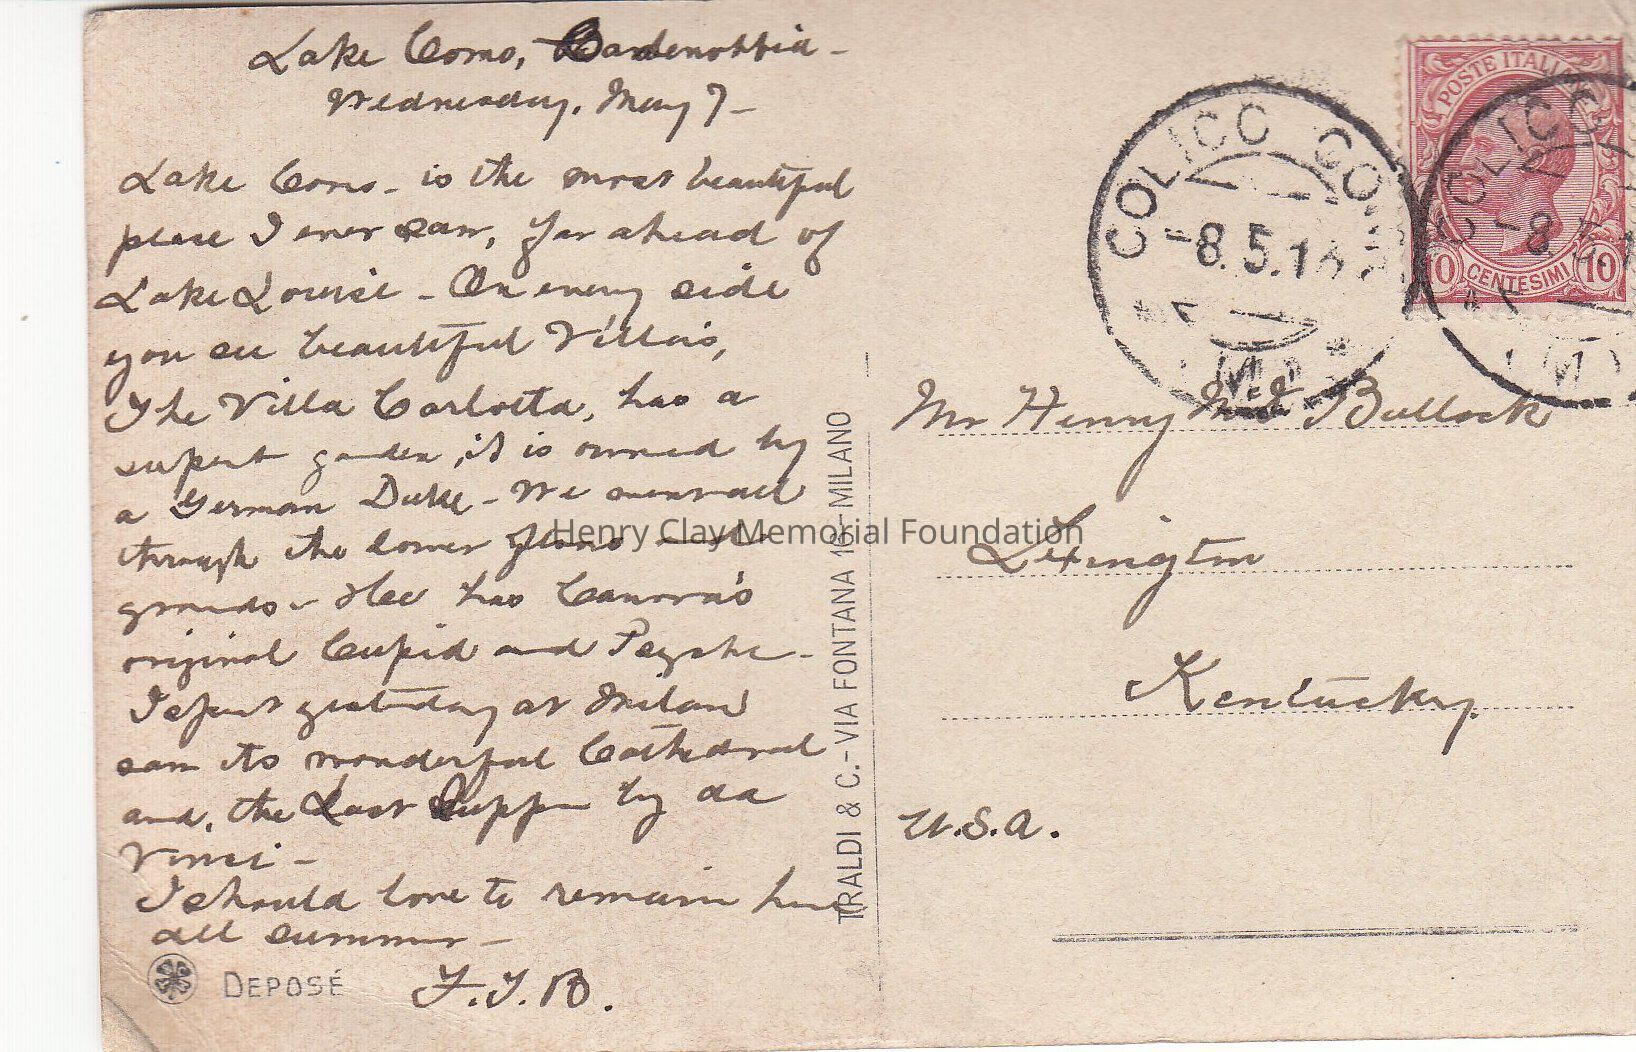 Lake Como, Cadenabbia -
Wednesday, May 7 -
Lake Como - is the most beautiful
place I ever saw, far ahead of
Lake Louise - On every side
you see beautiful Villas,
The Villa Carlotta, has a
superb garden, it is owned by
a German Duke - We
through the lower floor and
grounds - He has Canova's
original Cupid and Psyche -
I spent yesterday at Milan
saw its wonderful Cathedral
and, the Last Supper by da
Vinci -
I should love to remain here
all summer -
F.J.B.
DEPOSÉ
TRALDI & C. - VIA FONTANA 16 - MILANO
Henry Clay Memorial Foundation
COLICO COMO
-8.5.1
POSTE ITALIANE
10 CENTESIMI 10
COLICO
-8.5.1
Mr Henry Bullock
Lexington
Kentucky.
U.S.A.